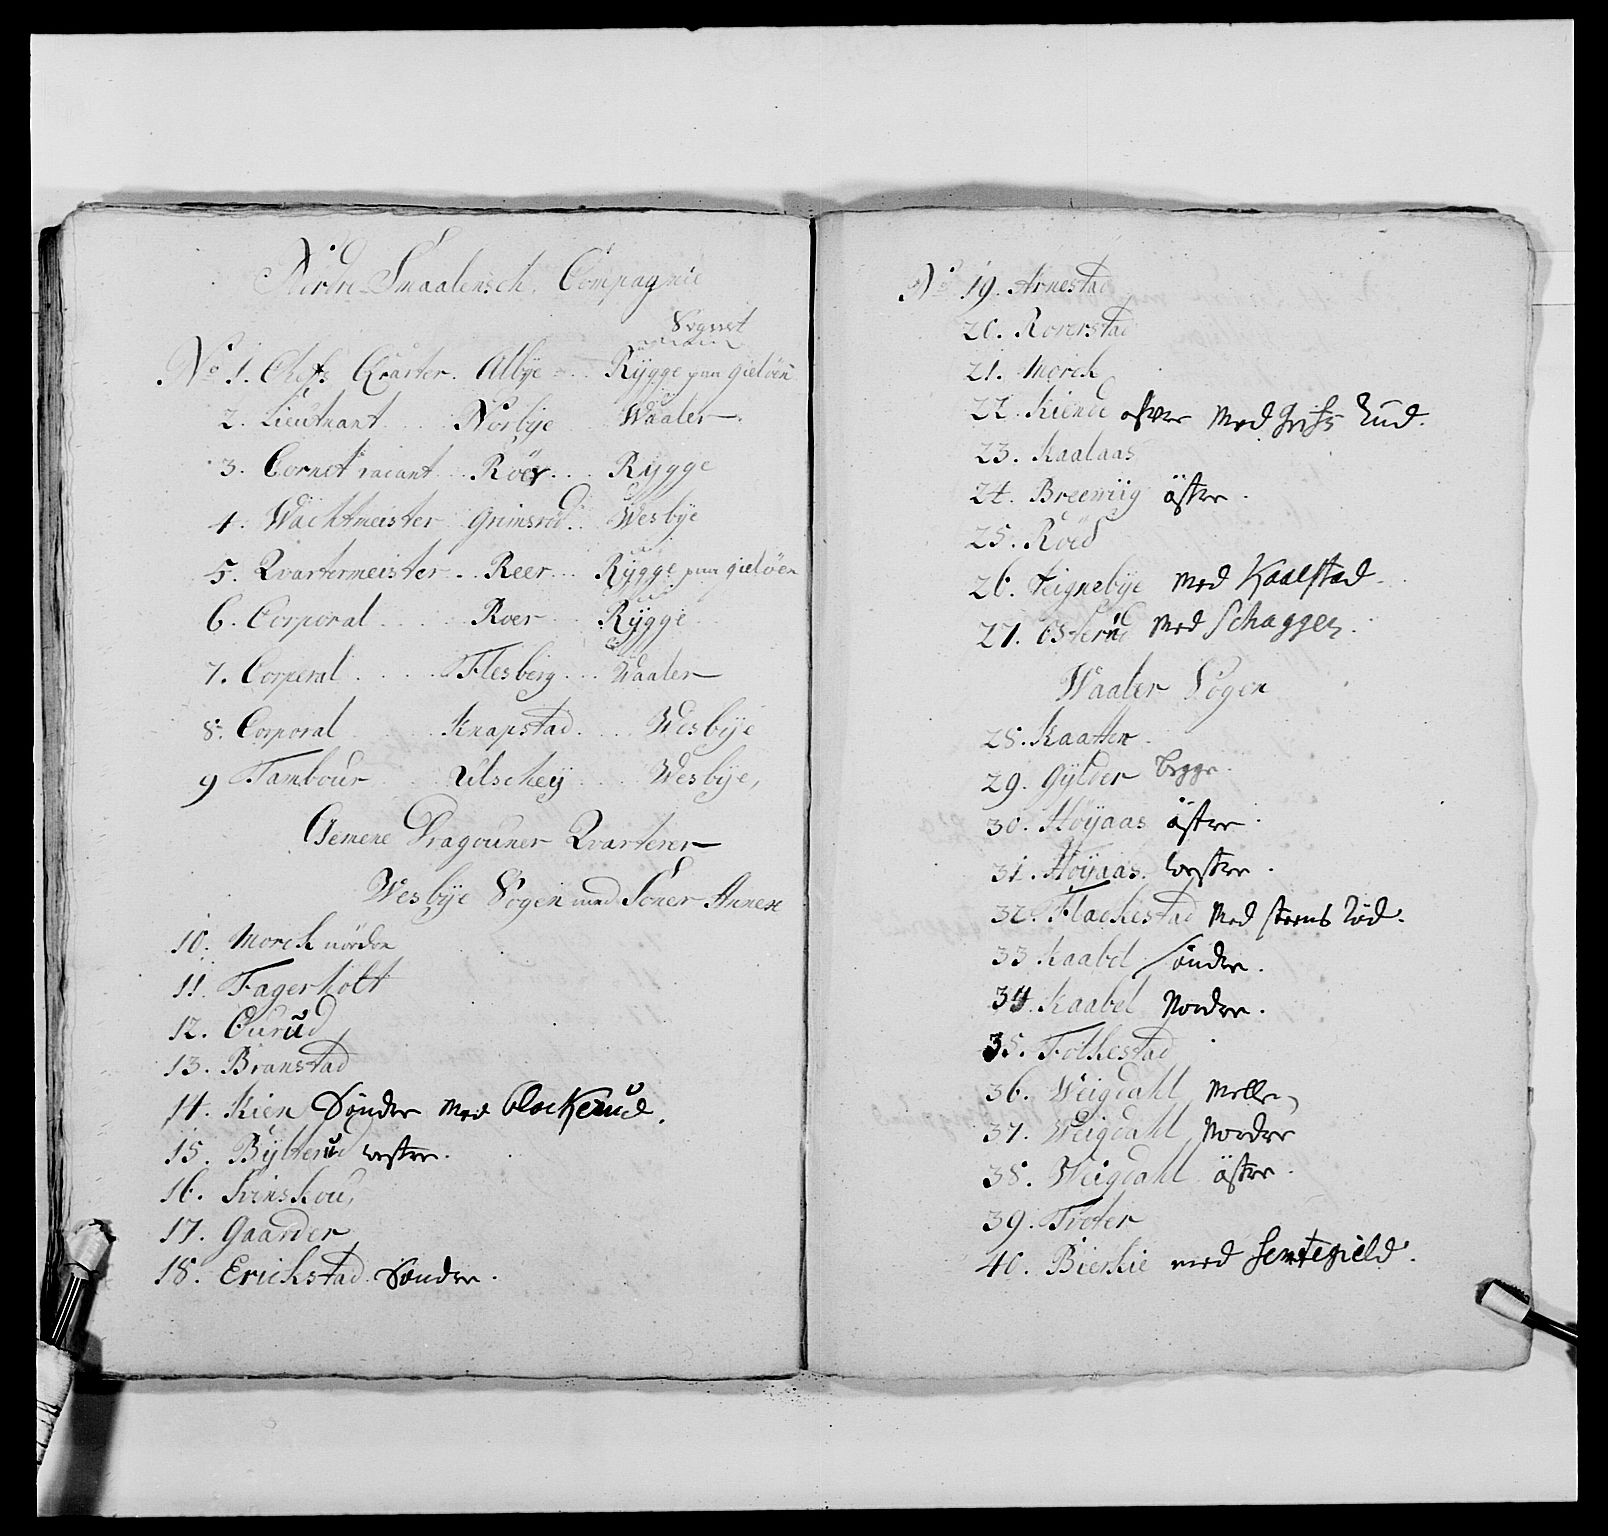 Nidre Smaalensch. Compagnie
Sognet
No 1. Chefs Qvarter. Albye Rÿgge paa gieløen
2. Lieutnant Norbÿe Waaler
3. Cornet vacant Röer Rÿgge
4. Wachtmeister Grimsrød Wesbÿe
5. Qvartermeister Reer Rÿgge paa gieløen
6. Corporal Roer Rÿgge
7. Corporal Flesberg Waaler
8. Corporal Knapstad Wesbÿe
9 Tambour Ulschey Wesbÿe,
Gemene Dragouner Qvarterer
Wesbÿe Sogen med Soner Annex
10. Morck nördre
11. Fagerholt
12. Ourud
13. Branstad
14. Kien Sönder med blackerud.
15. Bÿlterud vestre.
16. Svinskou,
17. Gaarder
18. Erickstad Söndre.
No 19. Arnestad
20. Roverstad
21. Morck
22. Kiende östre med rud.
23. Kaalaas
24. Breevüg östre.
25. Röed
26. Teignebÿe med Kaalstad.
27. Osterud med Schaggen.
Waaler Sogen
28. Kaatten.
29. Gÿlder begge.
30. Höÿaas östre.
31. Höÿaas. vestre.
32. Flackestad med steensrød.
33 Kaabel Söndre.
34. Kaabel Nordre.
35. Folkestad
36. Weigdahl Mellem
37. Weigdahl Nordre
38. Weigdahl östre.
39. Tveter
40. Bierkie med